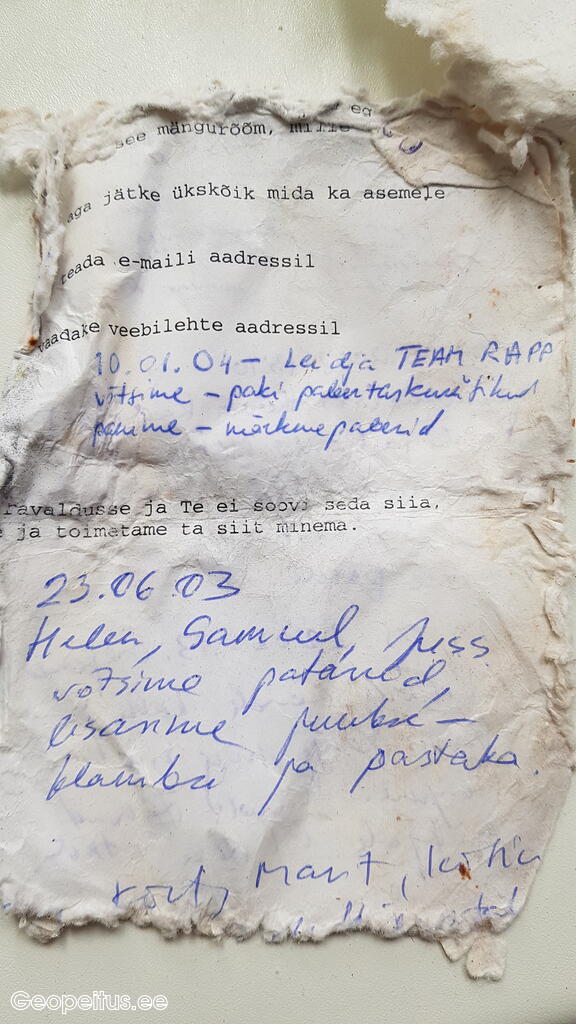 see mängurõõm, mille
aga jätke ükskõik mida ka asemele
teada e-maili aadressil
vaadake veebilehte aadressil
10.01.04 - Leidja TEAM RAPP
võtsime - paki pabertaskurätikuid
panime - märkmepaberid
ravaldusse ja Te ei soovi seda siia,
ja toimetame ta siit minema.
23.06.03
Helen, Samuel, Juss
võtsime patareid,
lisasime juukse-
klambri ja pastaka.
Mart,
Geopeitus.ee